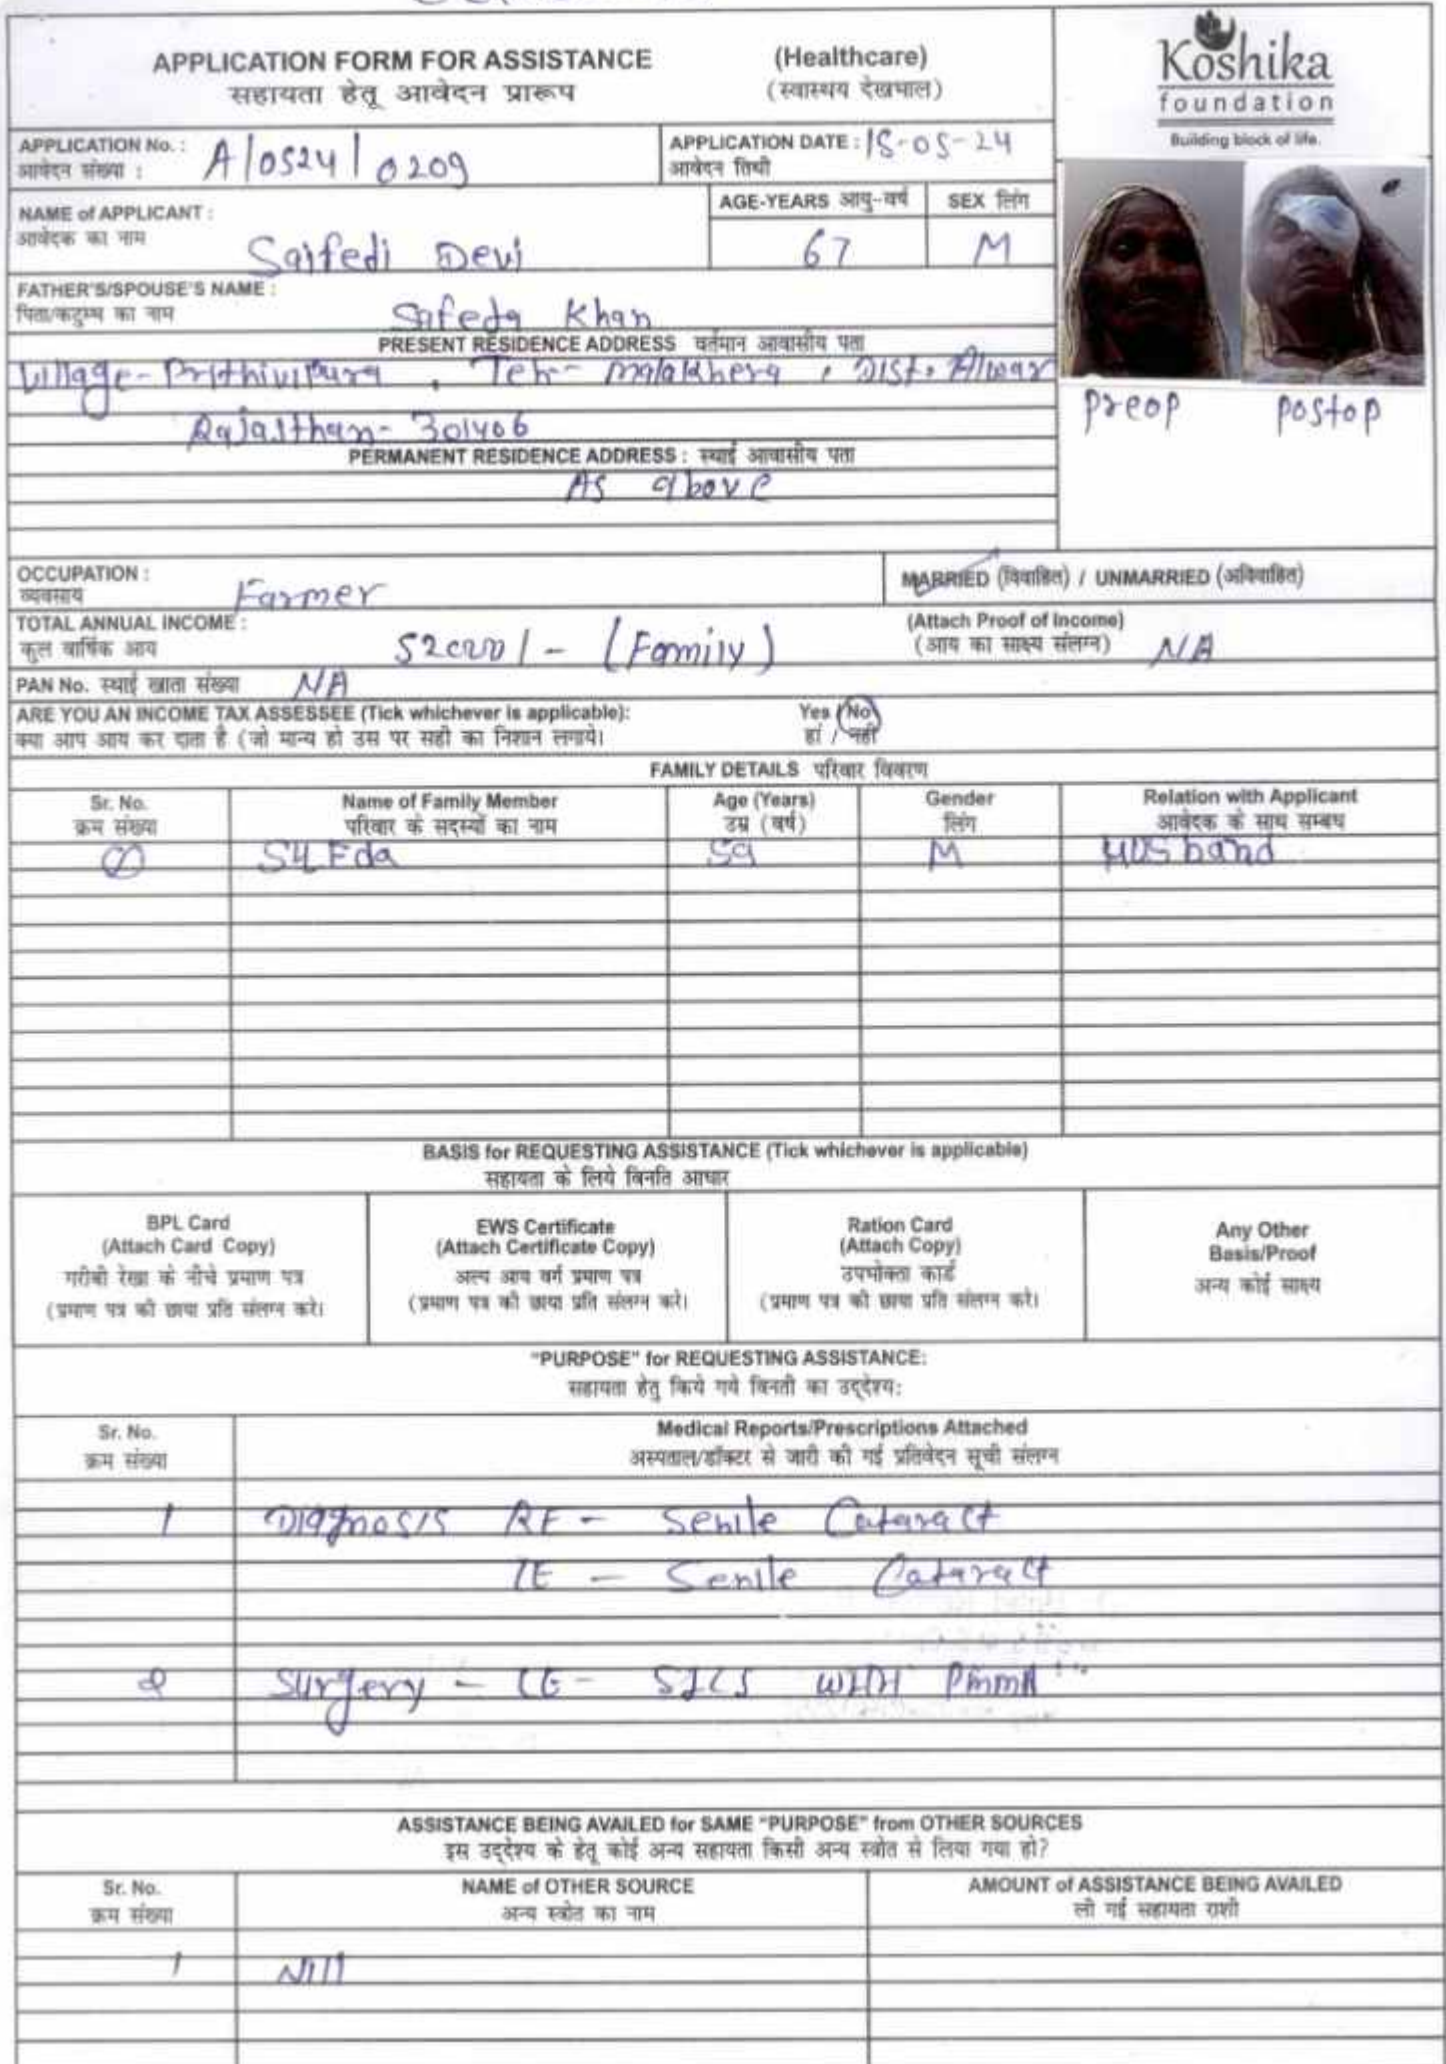 APPLICATION FORM FOR ASSISTANCE (Healthcare)
सहायता हेतू आवेदन प्रारूप (स्वास्थय देखभाल)
Koshika
foundation
Building block of life.
APPLICATION No. : A/0524/0209
आवेदन संख्या :
APPLICATION DATE : 15-05-24
आवेदन तिथी
NAME of APPLICANT :
आवेदक का नाम
Saifedi Devi
AGE-YEARS आयु-वर्ष
67
SEX लिंग
M
FATHER'S/SPOUSE'S NAME :
पिता/कटुम्ब का नाम
Safeda Khan
PRESENT RESIDENCE ADDRESS वर्तमान आवासीय पता
Village- Prithivipura , Teh- Malakhera , Dist. Alwar
Rajasthan- 301406
preop postop
PERMANENT RESIDENCE ADDRESS : स्थाई आवासीय पता
As above
OCCUPATION :
व्यवसाय
Farmer
MARRIED (विवाहित) / UNMARRIED (अविवाहित)
TOTAL ANNUAL INCOME :
कुल वार्षिक आय
52000/- (Family)
(Attach Proof of Income)
(आय का साक्ष्य संलग्न) NA
PAN No. स्थाई खाता संख्या NA
ARE YOU AN INCOME TAX ASSESSEE (Tick whichever is applicable): Yes / No
क्या आप आय कर दाता है (जो मान्य हो उस पर सही का निशान लगाये। हां / नहीं
FAMILY DETAILS परिवार विवरण
Sr. No. Name of Family Member Age (Years) Gender Relation with Applicant
क्रम संख्या परिवार के सदस्यों का नाम उम्र (वर्ष) लिंग आवेदक के साथ सम्बध
SUFda 59 M Husband
BASIS for REQUESTING ASSISTANCE (Tick whichever is applicable)
सहायता के लिये विनति आधार
BPL Card
(Attach Card Copy)
गरीबी रेखा के नीचे प्रमाण पत्र
(प्रमाण पत्र की छाया प्रति संलग्न करे।
EWS Certificate
(Attach Certificate Copy)
अल्प आय वर्ग प्रमाण पत्र
(प्रमाण पत्र की छाया प्रति संलग्न करे।
Ration Card
(Attach Copy)
उपभोक्ता कार्ड
(प्रमाण पत्र की छाया प्रति संलग्न करे।
Any Other
Basis/Proof
अन्य कोई साक्ष्य
"PURPOSE" for REQUESTING ASSISTANCE:
सहायता हेतु किये गये विनती का उद्देश्य:
Sr. No. Medical Reports/Prescriptions Attached
क्रम संख्या अस्पताल/डॉक्टर से जारी की गई प्रतिवेदन सूची संलग्न
1 Diagnosis RE - Senile Cataract
LE - Senile Cataract
2 Surgery - LE - SICS WITH PMMA
ASSISTANCE BEING AVAILED for SAME "PURPOSE" from OTHER SOURCES
इस उद्देश्य के हेतू कोई अन्य सहायता किसी अन्य स्त्रोत से लिया गया हो?
Sr. No. NAME of OTHER SOURCE AMOUNT of ASSISTANCE BEING AVAILED
क्रम संख्या अन्य स्त्रोत का नाम ली गई सहायता राशी
1 Nill